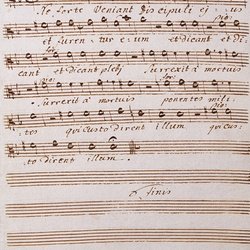 Ne forte Veniant discipuli ejus
et furentur eum et dicant et di
cant et dicant plebi surrexit à mortuis
pio:
surrexit à mortuis ponentes mili
tes qui custodirent illum qui cus
todirent illum
Finis